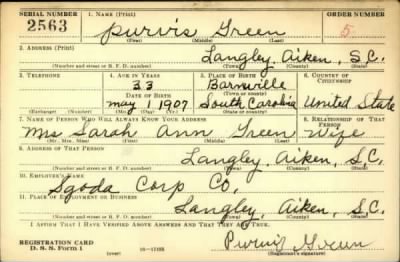 SERIAL NUMBER 1. NAME (Print) ORDER NUMBER
2563 Purvis Green 5
(First) (Middle) (Last)
2. ADDRESS (Print)
Langley, Aiken, S.C.
(Number and street or R. F. D. number) (Town) (County) (State)
3. TELEPHONE 4. AGE IN YEARS 5. PLACE OF BIRTH 6. COUNTRY OF CITIZENSHIP
33 Barnville
DATE OF BIRTH (Town or county)
May 1 1907 South Carolina United State
(Exchange) (Number) (Mo.) (Day) (Yr.) (State or country)
7. NAME OF PERSON WHO WILL ALWAYS KNOW YOUR ADDRESS 8. RELATIONSHIP OF THAT PERSON
Mrs Sarah Ann Green Wife
(Mr., Mrs., Miss) (First) (Middle) (Last)
9. ADDRESS OF THAT PERSON
Langley, Aiken, S.C.
(Number and street or R. F. D. number) (Town) (County) (State)
10. EMPLOYER'S NAME
Sgoda Corp Co,
11. PLACE OF EMPLOYMENT OR BUSINESS
Langley, Aiken, S.C.
(Number and street or R. F. D. number) (Town) (County) (State)
I AFFIRM THAT I HAVE VERIFIED ABOVE ANSWERS AND THAT THEY ARE TRUE.
REGISTRATION CARD
D. S. S. Form 1 (over) Purvis Green
(Registrant's signature)